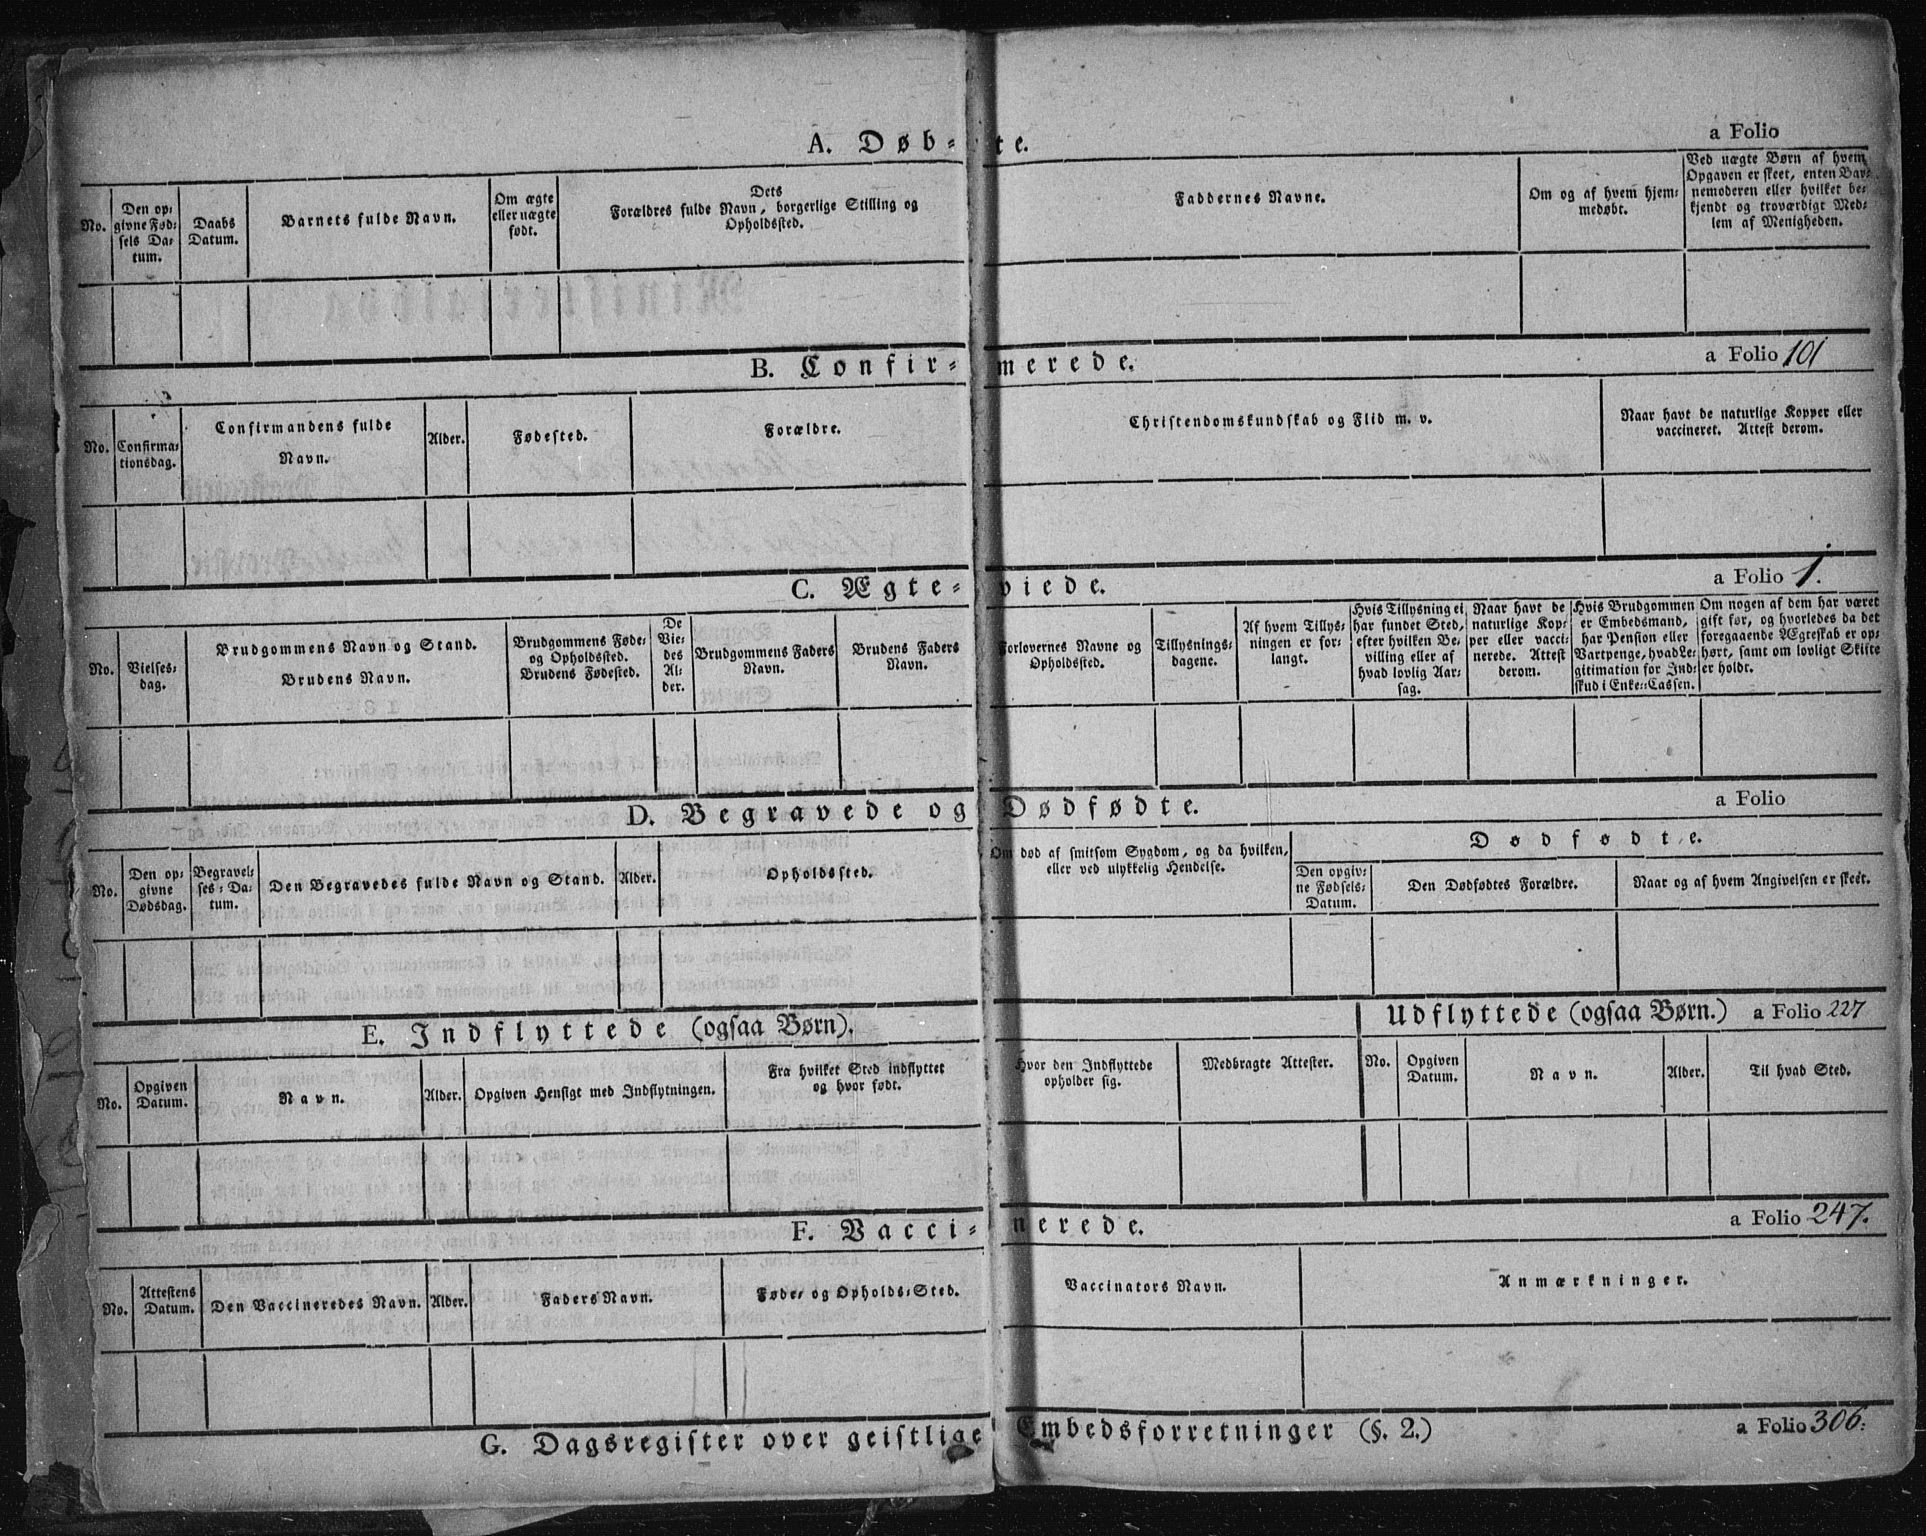 A. Døb-te. a Folio
No.
Den op-
givne Fød-
sels Da-
tum.
Daabs
Datum.
Barnets fulde Navn.
Om ægte
eller uægte
født.
Dets
Forældres fulde Navn, borgerlige Stilling og
Opholdssted.
Faddernes Navne.
Om og af hvem hjem-
medøbt.
Ved uægte Børn af hvem
Opgaven er skeet, enten Bar-
nemoderen eller hvilket be-
kjendt og troværdigt Med-
lem af Menigheden.
B. Confir-merede. a Folio 101
No.
Confirma-
tionsdag.
Confirmandens fulde
Navn.
Alder.
Fødested.
Forældre.
Christendomskundskab og Flid m. v.
Naar havt de naturlige Kopper eller
vaccineret. Attest derom.
C. Ægte-viede. a Folio 1.
No.
Vielses-
dag.
Brudgommens Navn og Stand.
Brudens Navn.
Brudgommens Føde-
og Opholdssted.
Brudens Fødested.
De
Vie-
des
Al-
der.
Brudgommens Faders
Navn.
Brudens Faders
Navn.
Forlovernes Navne og
Opholdssted.
Tillysnings-
dagene.
Af hvem Tillys-
ningen er for-
langt.
Hvis Tillysning ei
har fundet Sted,
efter hvilken Be-
villing eller af
hvad lovlig Aar-
sag.
Naar havt de
naturlige Kop-
per eller vacci-
nerede. Attest
derom.
Hvis Brudgommen
er Embedsmand,
har Pension eller
Vartpenge, hvad Le-
gitimation for Ind-
skud i Enke-Cassen.
Om nogen af dem har været
gift før, og hvorledes da det
foregaaende Ægteskab er op-
hørt, samt om lovligt Skifte
er holdt.
D. Begravede og Dødfødte. a Folio
No.
Den op-
givne
Dødsdag.
Begravel-
ses-Da-
tum.
Den Begravedes fulde Navn og Stand.
Alder.
Opholdssted.
Om død af smitsom Sygdom, og da hvilken,
eller ved ulykkelig Hendelse.
Dødfødte.
Den opgiv-
ne Fødsels-
Datum.
Den Dødfødtes Forældre.
Naar og af hvem Angivelsen er skeet.
E. Indflyttede (ogsaa Børn). Udflyttede (ogsaa Børn.) a Folio 227
No.
Opgiven
Datum.
Navn.
Alder.
Opgiven Hensigt med Indflytningen.
Fra hvilket Sted indflyttet
og hvor født.
Hvor den Indflyttede
opholder sig.
Medbragte Attester.
No.
Opgiven
Datum.
Navn.
Alder.
Til hvad Sted.
F. Vacci-nerede. a Folio 247.
No.
Attestens
Datum.
Den Vaccineredes Navn.
Alder.
Faders Navn.
Føde- og Opholds-Sted.
Vaccinators Navn.
Anmærkninger.
G. Dagsregister over geistlige Embedsforretninger (§. 2.) a Folio 306.